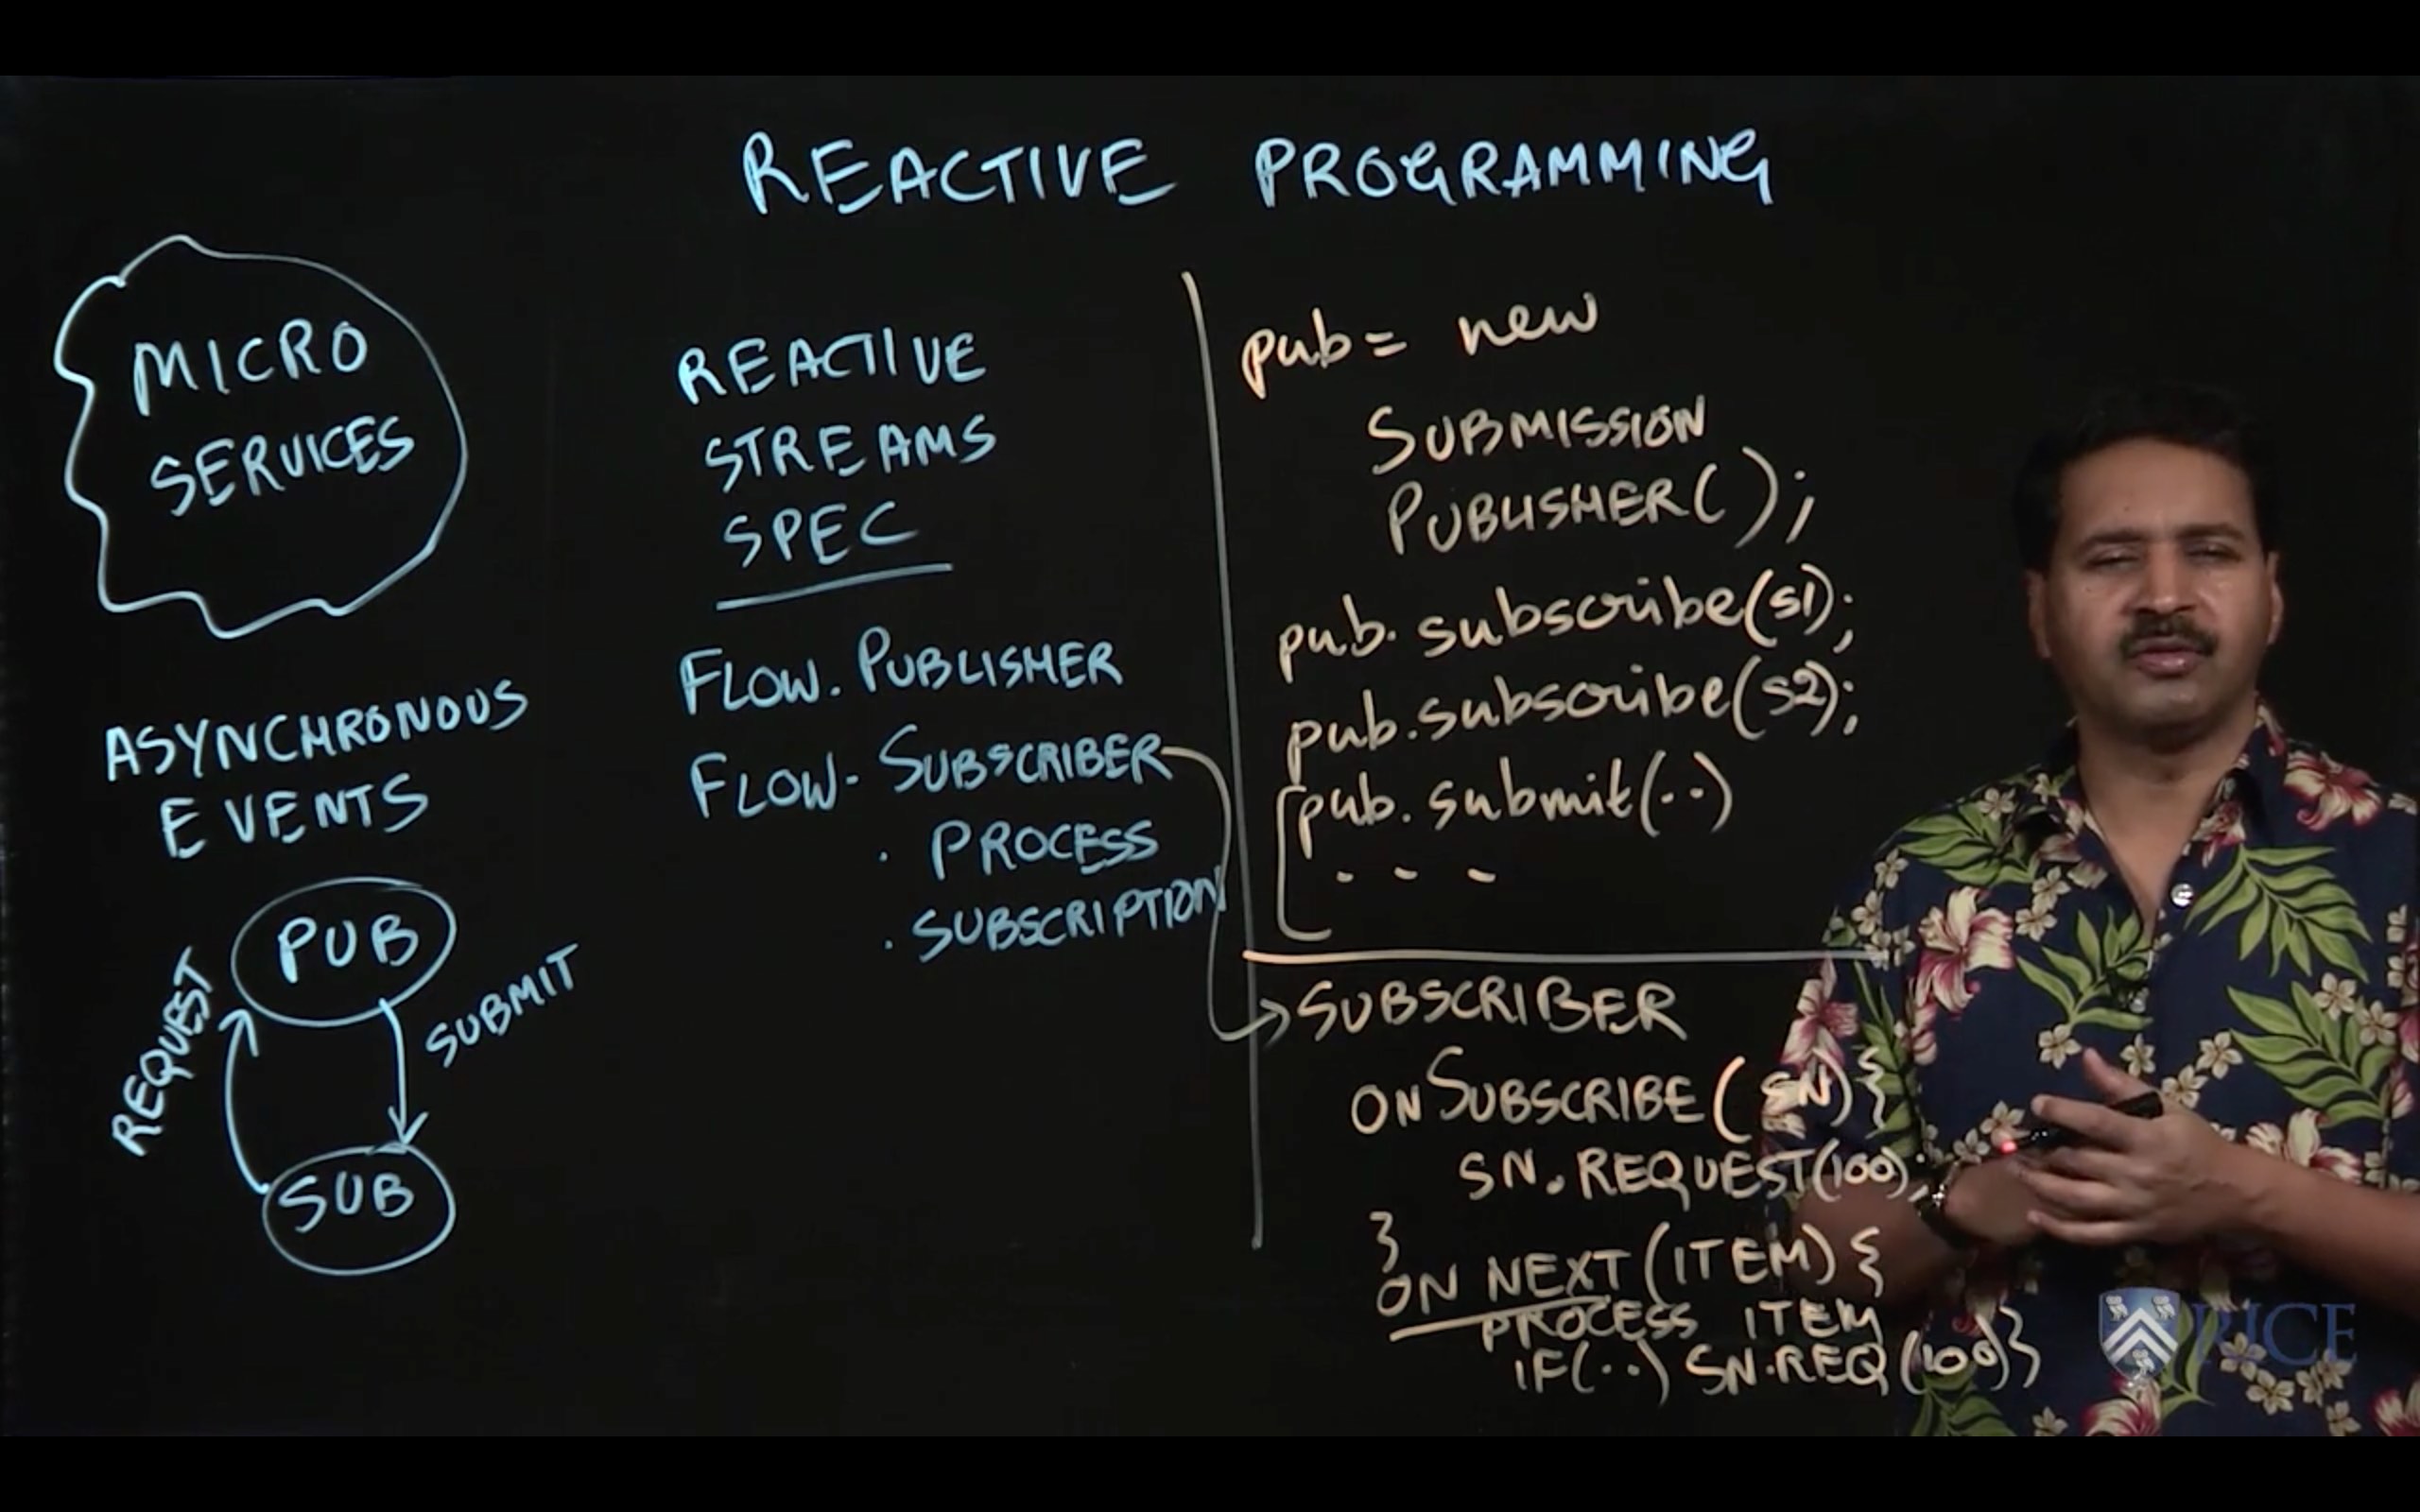 REACTIVE PROGRAMMING
MICRO
SERVICES
ASYNCHRONOUS
EVENTS
PUB
REQUEST
SUBMIT
SUB
REACTIVE
STREAMS
SPEC
FLOW. PUBLISHER
FLOW. SUBSCRIBER
. PROCESS
. SUBSCRIPTION
pub = new
SUBMISSION
PUBLISHER( );
pub. subscribe(s1);
pub. subscribe(s2);
pub. submit(..)
- - -
SUBSCRIBER
ONSUBSCRIBE( SN) {
SN. REQUEST(100);
}
ON NEXT (ITEM) {
PROCESS ITEM
IF(..) SN.REQ (100)}
RICE